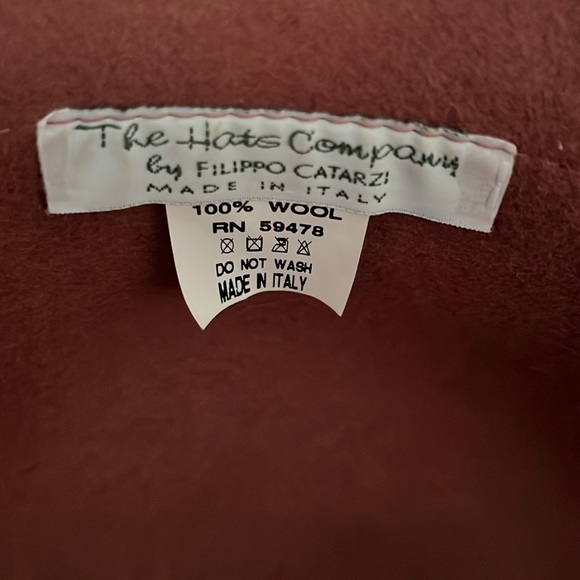 The Hats Company
by FILIPPO CATARZI
MADE IN ITALY
100% WOOL
RN 59478
DO NOT WASH
MADE IN ITALY